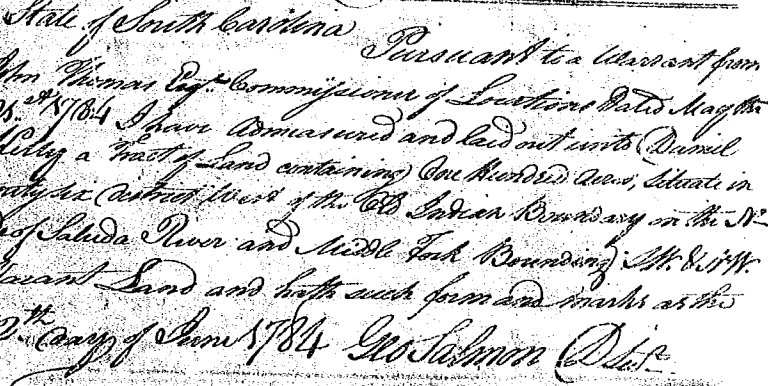 State of South Carolina
Pursuant to a Warrant from
John Thomas Esqr. Commissioner of Locations Dated May the
21.st 1784 I have admeasured and laid out unto Daniel
Kelly a Tract of Land containing One Hundred Acres, Situate in
Ninety six District West of the Old Indian Boundary on the No.
of Saluda River and Middle Fork Bounding SW. & NW.
Vacant Land and hath such form and marks as the
day of June 1784 Geo Salmon D